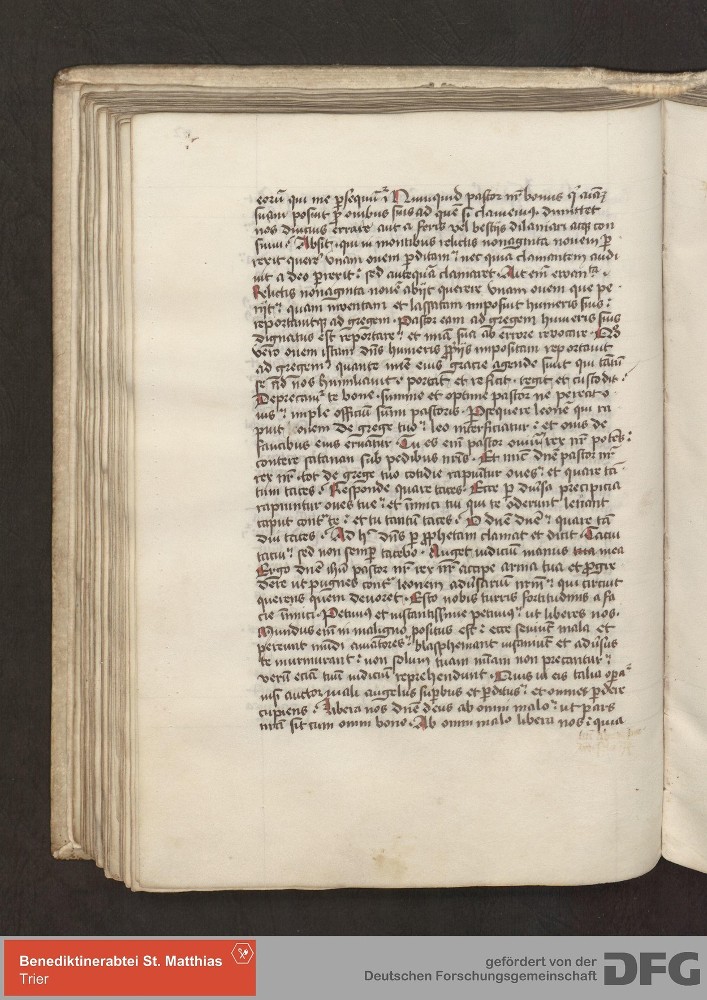 eorū qui me ꝑsequūt̄ Nunquid pastor nr̄ bonus qͥ aīaȝ
suam posuit ꝓ ouibus suis ad quē si clamemꝰ dimittet
nos diucius errare aut a feris vel bestijs dilaniari atqꝫ con
sumi Absit qui in montibus relictis nonaginta nouem ꝑ
rexit querē vnam ouem ꝑditam nec quia clamantem audi
uit a deo ꝑrexit sed anteqͣ clamaret Ait em̄ ewan
Relictis nonaginta nouē abijt querere vnam ouem que pe
rijt quam inuentam et lassatam imposuit humeris suis
reportauitqꝫ ad gregem Pastor eam ad gregem humeris suis
dignatus est reportare et in sua ab errore reuocare
vero ouem istam dn̄s humeris ꝓprijs impositam reportauit
ad gregem quante eius gracie agende sunt qui tantū
se ad nos humiliauit portat et reficit regit et custodit
Deprecamꝰ te bone summe et optime pastor ne pereat o
uis imple officiū suū pastoris Persequere leonē qui ra
puit ouem de grege tuo leo interficiatur et ouis de
faucibus eius eruatur Tu es em̄ pastor ouiū rex nr̄ potēs
contere satanan sub pedibus nr̄is Et nūc dn̄e pastor nr̄
rex nr̄ tot de grege tuo cotidie rapiunt̄ur oues et quare tā
tum taces Responde quare taces Ecce ꝑ diūsa precipicia
rapiuntur oues tue et inimici tui qui te oderunt leuant
caput cont̄ te et tu tantū taces O dn̄e dn̄e quare tā
diu taces Ad h̄ dn̄s ꝑ ꝓphetam clamat et dicit Tacui
tacui sed non semꝑ tacebo Auget iudiciū manus tua mea
Ergo dn̄e ihū pastor nr̄ rex nr̄ accipe arma tua et ꝓgre
dere vt pugnes cont̄ leonem adūsariū nr̄m qui circuit
querens quem deuoret Esto nobis turris fortitudinis a fa
cie inimici Petimꝰ et instantissime petimꝰ vt liberes nos
Mundus em̄ in maligno positus est ecce seuiūt mala et
pereunt mūdi amatores blasphemant insaniūt et adūsus
te murmurant non solum tuam mīam non precantur
verū eciam tuū iudiciū reprehendunt Quis in eis talia oꝑaͬ
nisi auctor mali angelus suꝑbus et ꝑditus et omnes ꝑdere
cupiens Libera nos dn̄e deus ab omni malo vt pars
nr̄a sit cum omni bono Ab omni malo libera nos quia
Benediktinerabtei St. Matthias
Trier
gefördert von der
Deutschen Forschungsgemeinschaft
DFG